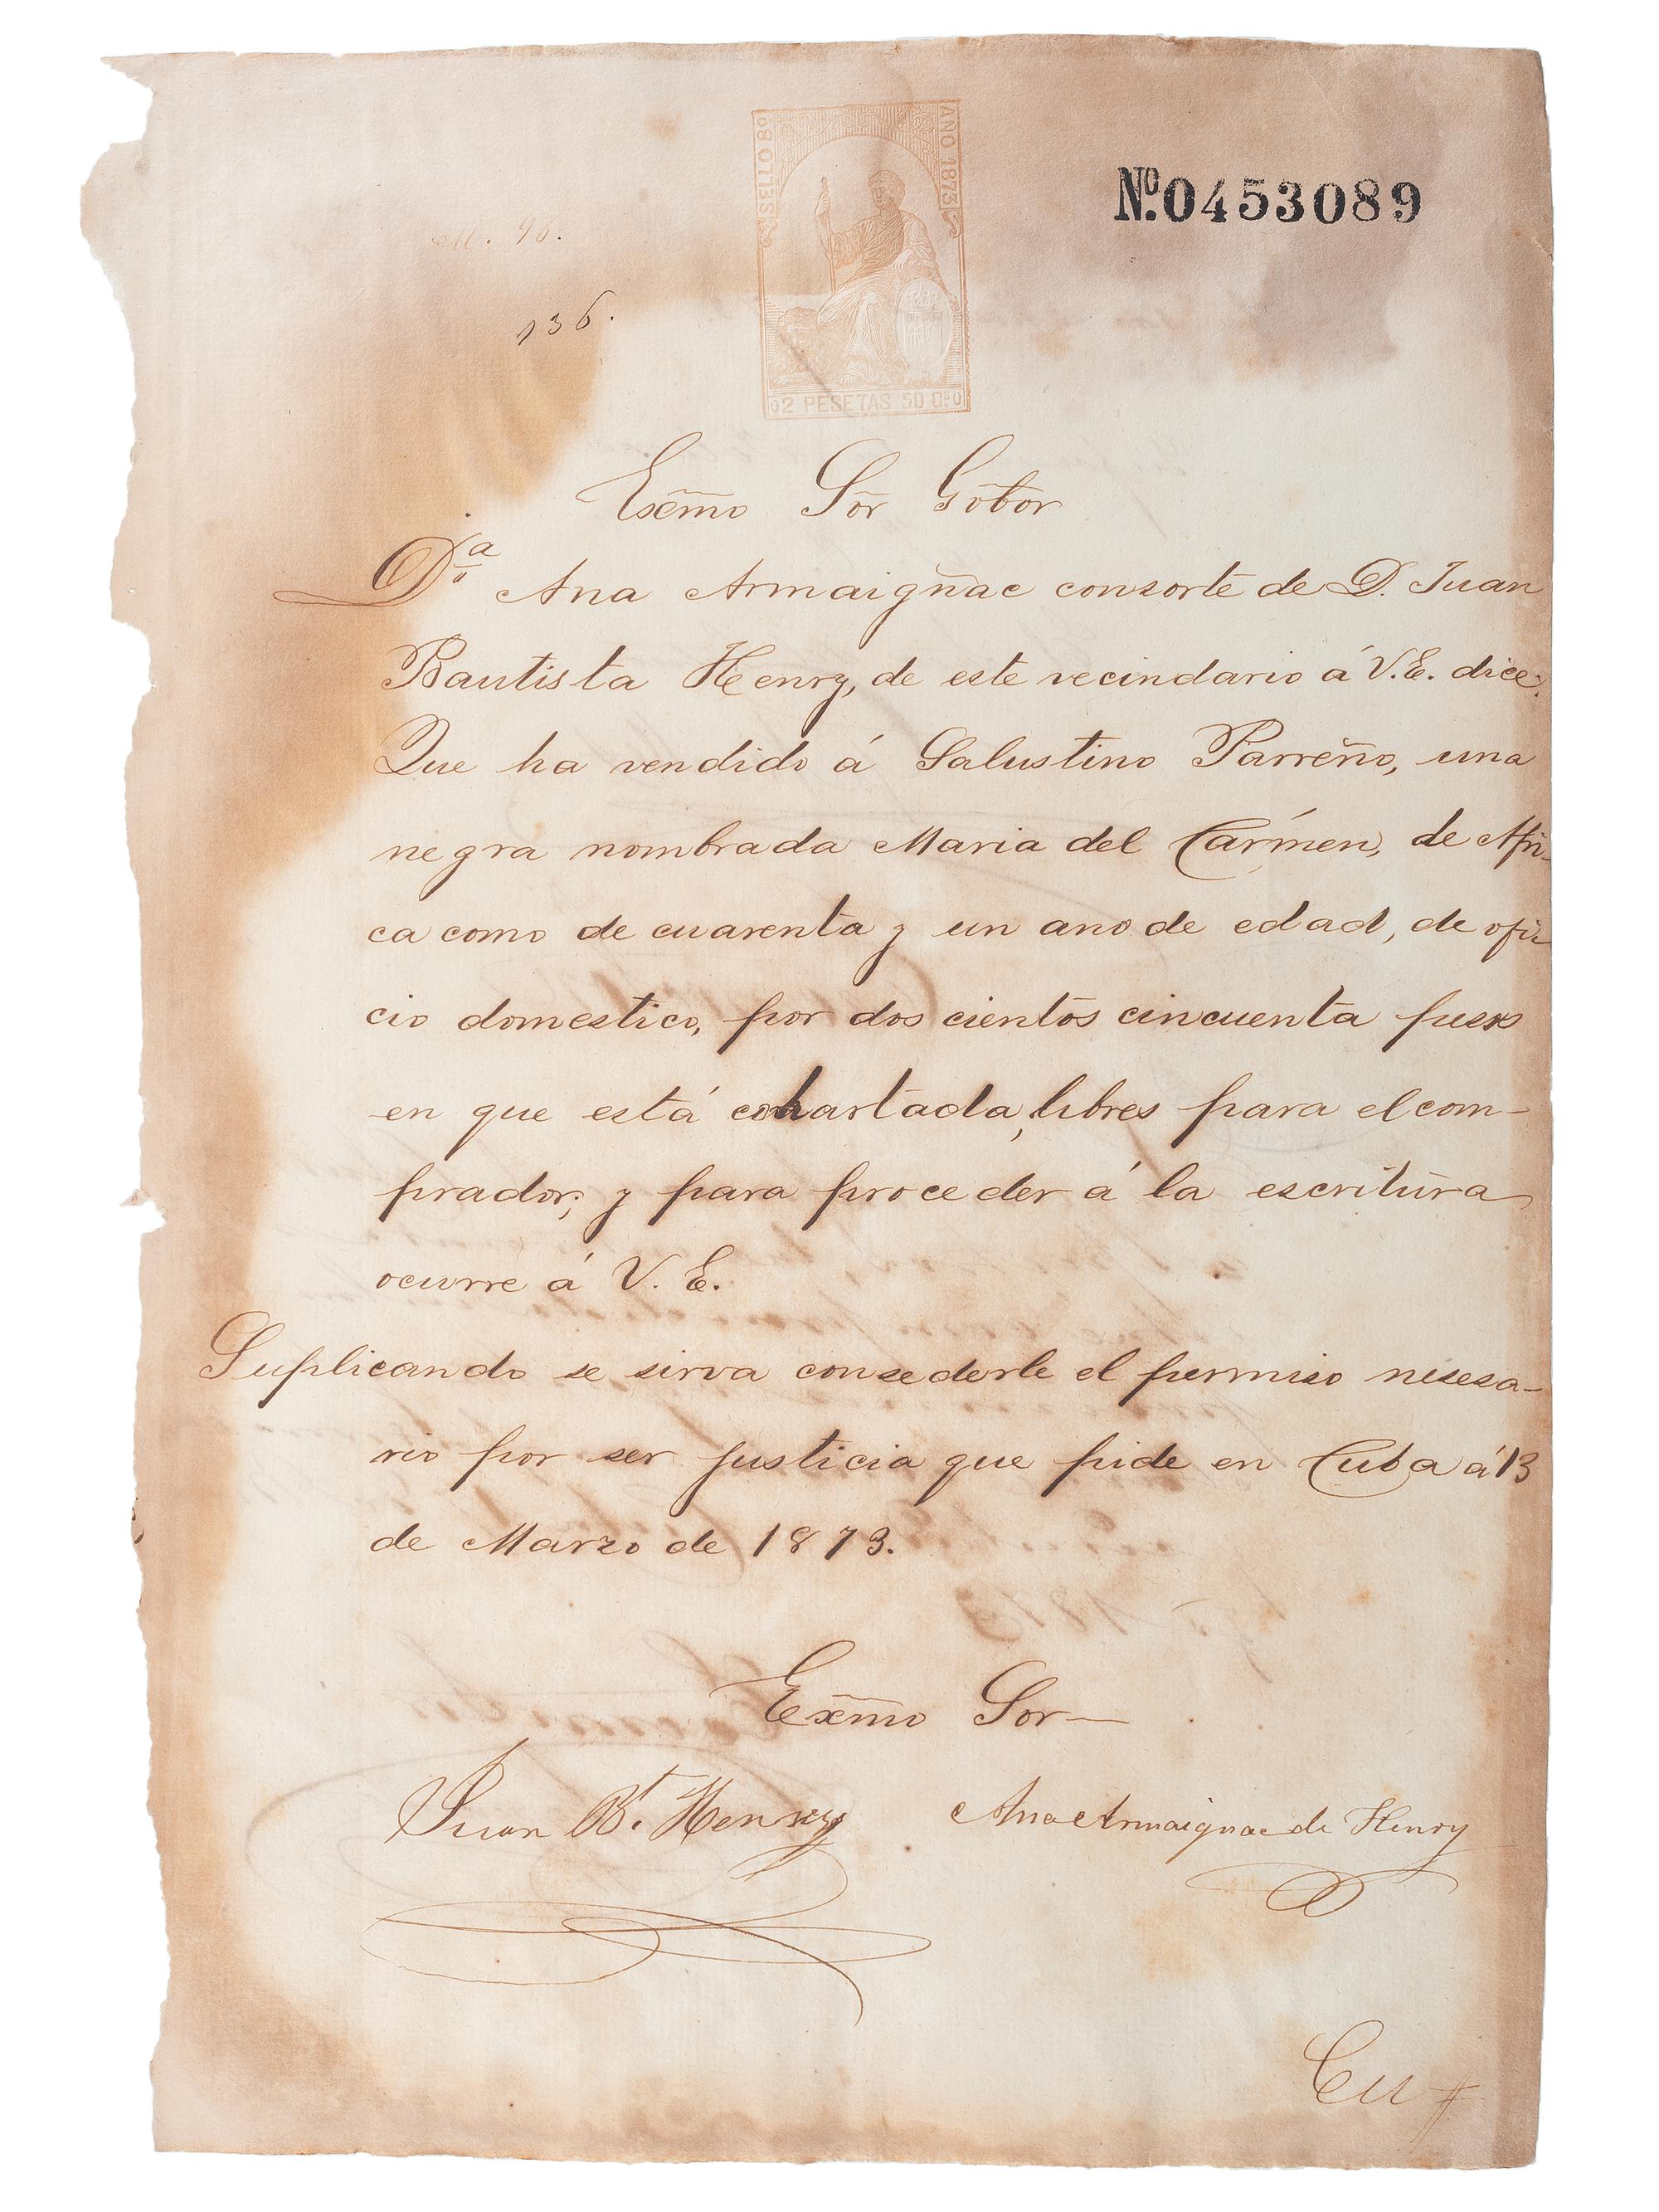 SELLO 8º
AÑO 1873
Nº 0453089
136.
02 PESETAS 50 Cs 0
Exm̃o Sõr Gõbor
D.ª Ana Armaigñac consorte de D. Juan
Bautista Henry, de este vecindario á V.E. dice:
Que ha vendido á Salustino Parreño, una
negra nombrada Maria del Cármen, de Afri-
ca como de cuarenta y un ano de edad, de ofi-
cio domestico, por dos cientos cincuenta pesos
en que está cohartada, libres para el com-
prador; y para proceder á la escritura
ocurre á V. E.
Suplicando se sirva consederle el permiso nesesa-
rio por ser justicia que pide en Cuba á 13
de Marzo de 1873.
Exm̃o Sor
Juan B.t Henry
Ana Armaignac de Henry